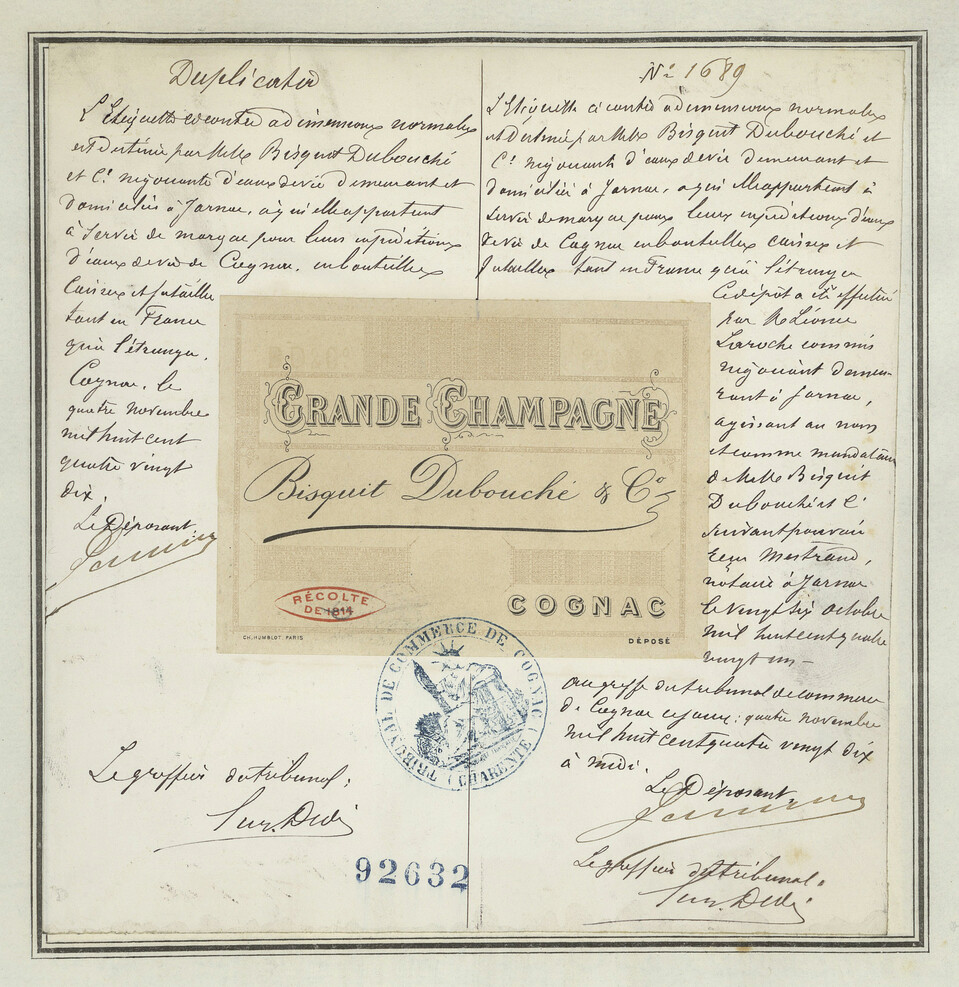 Duplicata
L'Etiquette ci contre a dimensions normales
est destinée par MM. Bisquit Dubouché
et Cⁱᵉ négociants d'eaux de vie demeurant et
domiciliés à Jarnac, à qui elle appartient
à servir de marque pour leurs expéditions
d'eaux de vie de Cognac, en bouteilles
Caisses et futailles
tant en France
qu'à l'étranger.
Cognac, le
quatre novembre
mil huit cent
quatre vingt
dix.
Le Déposant
Le greffier du tribunal,
Nº 1689
L'Etiquette ci contre a dimensions normales
est destinée par MM. Bisquit Dubouché et
Cⁱᵉ négociants d'eaux de vie demeurant et
domiciliés à Jarnac, a qui elle appartient à
servir de marque pour leurs expéditions d'eaux
de vie de Cognac en bouteilles caisses et
futailles tant en France qu'à l'étranger
Ce dépôt a été effectué
par M. Léonce
Laroche commis
négociant demeu-
rant à Jarnac,
agissant au nom
et comme mandataire
de MM. Bisquit
Dubouché et Cⁱᵉ
suivant pouvoir
reçu Mestraud,
notaire à Jarnac
le vingt six octobre
mil huit cent quatre
vingt un –
au greffe du tribunal de commerce
de Cognac ce jour: quatre novembre
mil huit cent quatre vingt dix
à midi.
Le Déposant,
Le greffier du tribunal.
GRANDE CHAMPAGNE
Bisquit Dubouché & Cº
RÉCOLTE
DE 1814
COGNAC
CH. HUMBLOT. PARIS
DÉPOSÉ
TRIBUNAL DE COMMERCE DE COGNAC
(CHARENTE)
92632